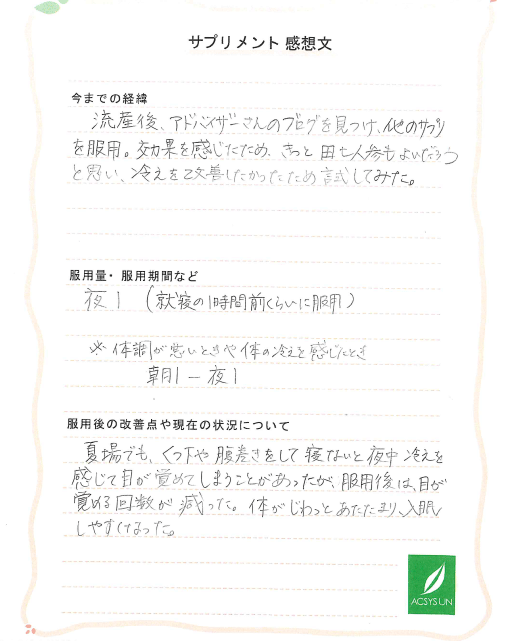 サプリメント 感想文
今までの経緯
流産後、アドバイザーさんのブログを見つけ、他のサプリ
を服用。効果を感じたため、きっと田七人参もよいだろう
と思い、冷えを改善したかったため試してみた。
服用量・服用期間など
夜1 (就寝の1時間前くらいに服用)
※ 体調が悪いときや体の冷えを感じたとき
朝1 − 夜1
服用後の改善点や現在の状況について
夏場でも、くつ下や腹巻きをして寝ないと夜中冷えを
感じて目が覚めてしまうことがあったが、服用後は、目が
覚める回数が減った。体がじわっとあたたまり、入眠
しやすくなった。
ACSYS UN